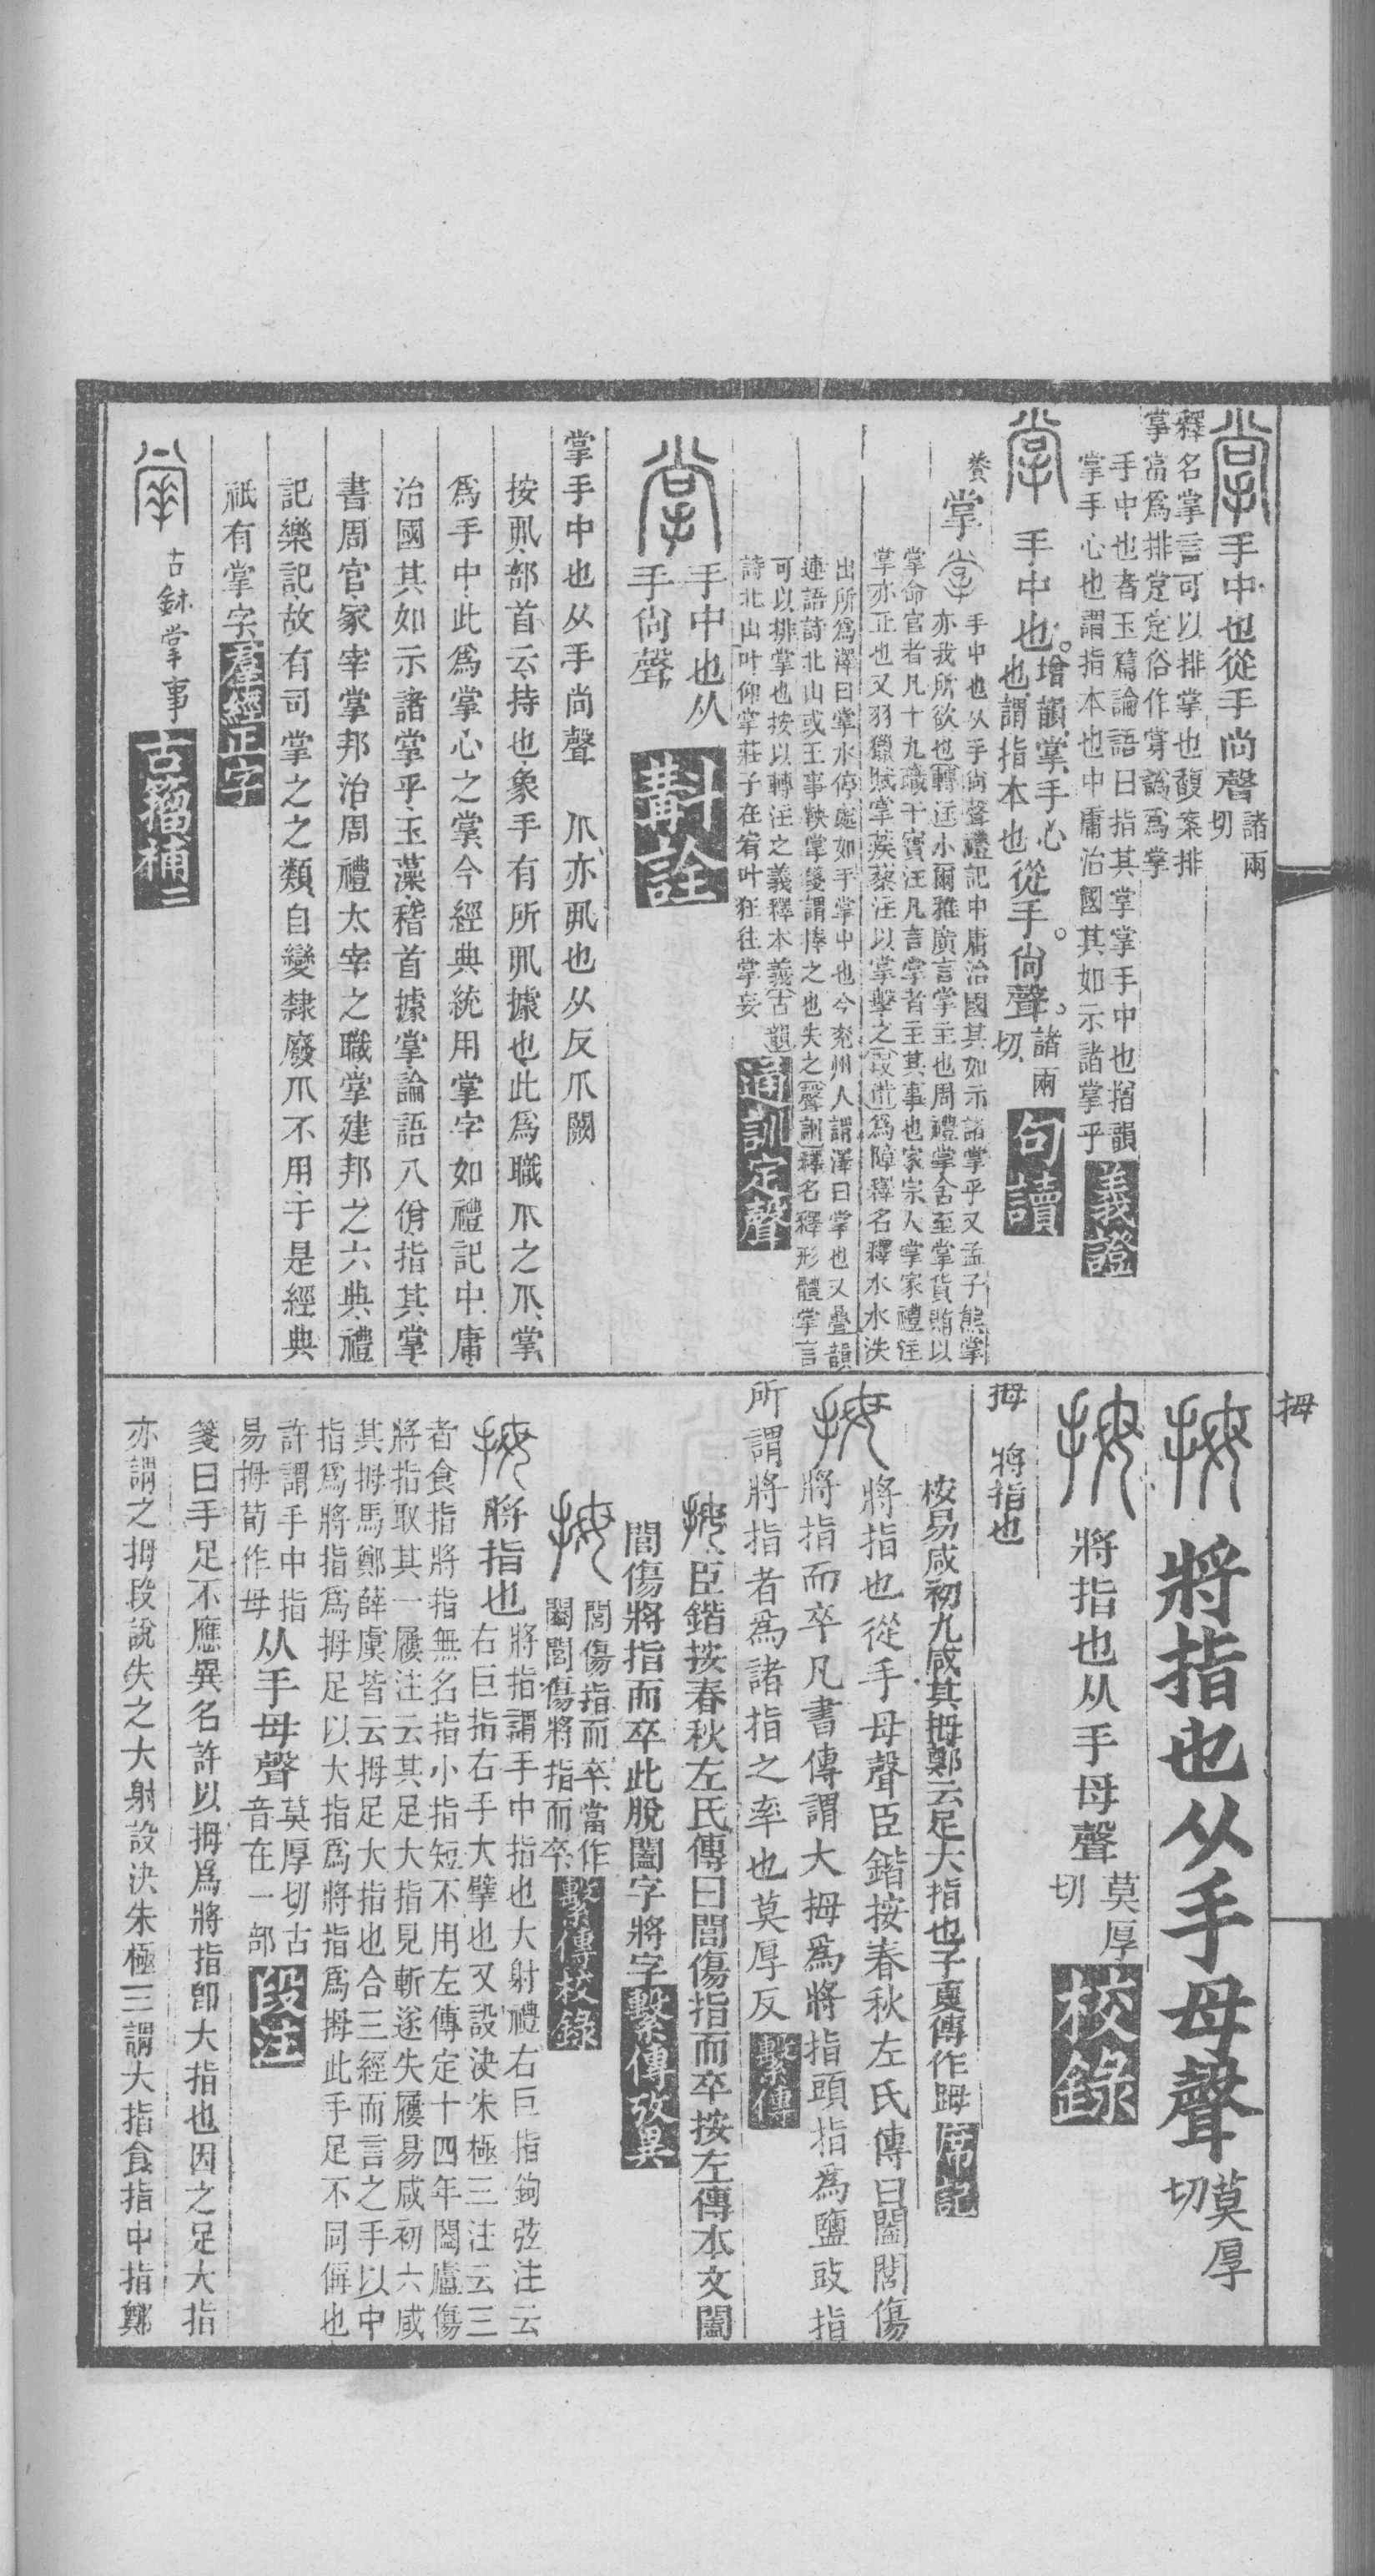 掌手中也從手尚聲諸兩切
釋名掌言可以排掌也馥案排
掌當爲排定定俗作掌譌爲掌
手中也者玉篇論語曰指其掌掌手中也揩韻
掌手心也謂指本也中庸治國其如示諸掌乎義證
掌手中也。增韻掌手心也謂指本也從手。尙聲。諸兩切句讀
掌手中也从手尙聲禮記中庸治國其如示諸掌乎又孟子熊掌
亦我所欲也轉注小爾雅廣言掌主也周禮掌舍至掌貨賄以
掌命官者凡十九職干寶注凡言掌者主其事也家宗人掌家禮注
掌亦正也又羽獵賦掌蒺藜注以掌擊之叚借爲障釋名釋水水泆
出所爲澤曰掌水停處如手掌中也今兗州人謂澤曰掌也又疊韻
連語詩北山或王事鞅掌箋謂捧之也失之聲訓釋名釋形體掌言
可以排掌也按以轉注之義釋本義古韻
詩北山叶仰掌莊子在宥叶狂往掌妄通訓定聲
掌手中也从手尙聲斠詮
掌手中也从手尚聲 爪亦丮也从反爪闕
按丮部首云持也象手有所丮據也此爲職爪之爪掌
爲手中此爲掌心之掌今經典統用掌字如禮記中庸
治國其如示諸掌乎玉藻稽首據掌論語八佾指其掌
書周官冢宰掌邦治周禮太宰之職掌建邦之六典禮
記樂記故有司掌之之類自變隸廢爪不用于是經典
祇有掌字羣經正字
古鉢掌事古籀補二
拇
拇將指也从手母聲莫厚切
拇將指也从手母聲莫厚切校錄
拇 將指也
桉易咸初九咸其拇鄭云足大指也子夏傳作踇席記
拇將指也從手母聲臣鍇按春秋左氏傳曰闔閭傷
將指而卒凡書傳謂大拇爲將指頭指爲鹽豉指
所謂將指者爲諸指之率也莫厚反繫傳
拇臣鍇按春秋左氏傳曰閭傷指而卒按左傳本文闔
閭傷將指而卒此脫闔字將字繫傳攷異
拇閭傷指而卒當作闔閭傷將指而卒繫傳校錄
拇將指也將指謂手中指也大射禮右巨指鉤弦注云
右巨指右手大擘也又設決朱極三注云三
者食指將指無名指小指短不用左傳定十四年闔廬傷
將指取其一屨注云其足大指見斬遂失屨易咸初六咸
其拇馬鄭薛虞皆云拇足大指也合三經而言之手以中
指爲將指爲拇足以大指爲將指爲拇此手足不同偁也
許謂手中指
易拇荀作母从手母聲莫厚切古音在一部段注
箋曰手足不應異名許以拇爲將指卽大指也因之足大指
亦謂之拇段說失之大射設決朱極三謂大指食指中指鄭